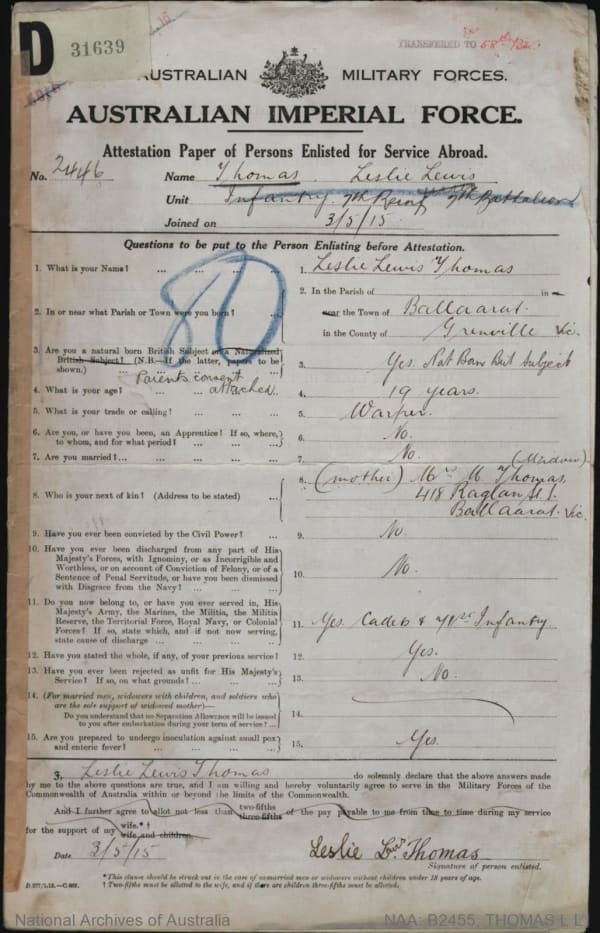 D 31639
TRANSFERRED TO 58th Bn
AUSTRALIAN MILITARY FORCES.
AUSTRALIAN IMPERIAL FORCE.
Attestation Paper of Persons Enlisted for Service Abroad.
No. 2446 Name Thomas Leslie Lewis
Unit Infantry 7th Reinf 7th Battalion
Joined on 3/5/15
Questions to be put to the Person Enlisting before Attestation.
80
1. What is your Name? ... ... ... ... 1. Leslie Lewis Thomas
2. In or near what Parish or Town were you born? ... 2. In the Parish of in
near the Town of Ballaarat
in the County of Grenville Vic.
3. Are you a natural born British Subject or a Naturalized
British Subject? (N.B.—If the latter, papers to be
shown.) 3. Yes. Nat Born Brit Subject
Parents consent attached.
4. What is your age? 4. 19 years.
5. What is your trade or calling? ... ... ... 5. Warper.
6. Are you, or have you been, an Apprentice? If so, where,
to whom, and for what period? ... ... 6. No.
7. Are you married? ... ... ... ... ... 7. No.
(Widow)
8. Who is your next of kin? (Address to be stated) ... 8. (mother) Mrs M. Thomas
418 Raglan St.
Ballaarat. Vic.
9. Have you ever been convicted by the Civil Power? ... 9. No.
10. Have you ever been discharged from any part of His
Majesty's Forces, with Ignominy, or as Incorrigible and
Worthless, or on account of Conviction of Felony, or of a
Sentence of Penal Servitude, or have you been dismissed
with Disgrace from the Navy? ... ... ... 10. No.
11. Do you now belong to, or have you ever served in, His
Majesty's Army, the Marines, the Militia, the Militia
Reserve, the Territorial Force, Royal Navy, or Colonial
Forces? If so, state which, and if not now serving,
state cause of discharge ... ... ... 11. Yes. Cadets & 71st Infantry
12. Have you stated the whole, if any, of your previous service? 12. Yes.
13. Have you ever been rejected as unfit for His Majesty's
Service? If so, on what grounds? ... ... 13. No.
14. (For married men, widowers with children, and soldiers who
are the sole support of widowed mother)—
Do you understand that no Separation Allowance will be issued
to you after embarkation during your term of service? ... 14.
15. Are you prepared to undergo inoculation against small pox
and enteric fever? ... ... ... ... 15. Yes.
I, Leslie Lewis Thomas do solemnly declare that the above answers made
by me to the above questions are true, and I am willing and hereby voluntarily agree to serve in the Military Forces of the
Commonwealth of Australia within or beyond the limits of the Commonwealth.
And I further agree to allot not less than two-fifths three-fifths of the pay payable to me from time to time during my service
for the support of my wife.*† wife and children.
Date 3/5/15 Leslie Lewis Thomas
Signature of person enlisted.
* This clause should be struck out in the case of unmarried men or widowers without children under 18 years of age.
† Two-fifths must be allotted to the wife, and if there are children three-fifths must be allotted.
National Archives of Australia NAA: B2455, THOMAS L L